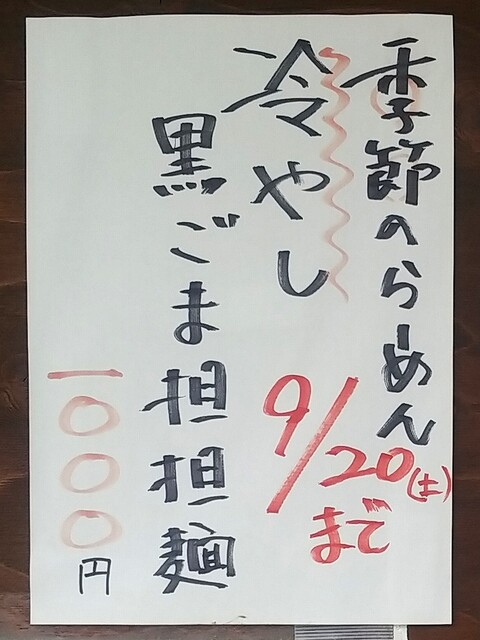 季節のらーめん
冷やし
9/20(土)
まで
黒ごま担担麺
一〇〇〇円